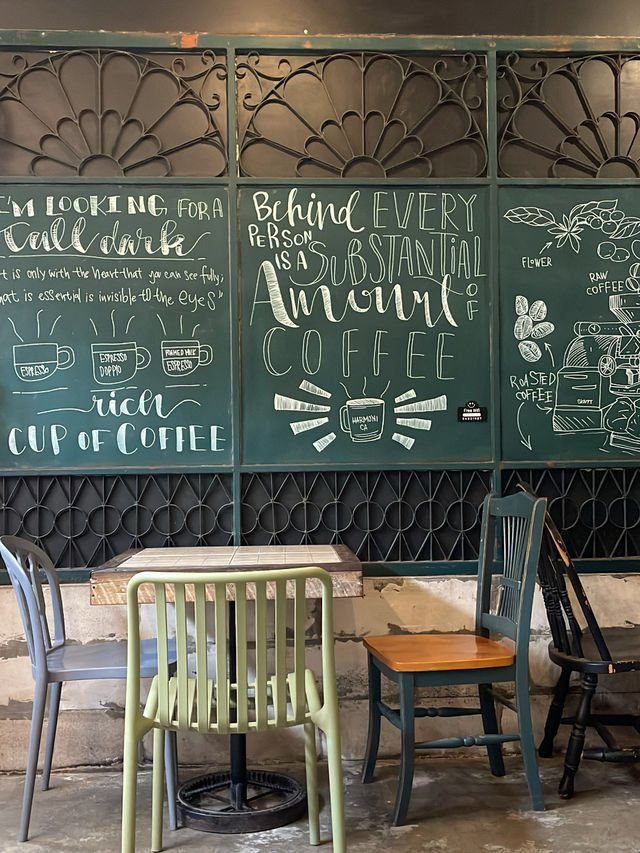 I'M LOOKING FOR A
tall dark
t is only with the heart that you can see fully,
hat is essential is invisible to the eyes"
ESPRESSO
ESPRESSO
DOPPIO
FOAMED MILK
ESPRESSO
rich
CUP OF COFFEE
Behind EVERY
PERSON
IS A SUBSTANTIAL
Amount OF
COFFEE
HARMONI
CA
Free Wifi
FLOWER
RAW
COFFEE
ROASTED
COFFEE